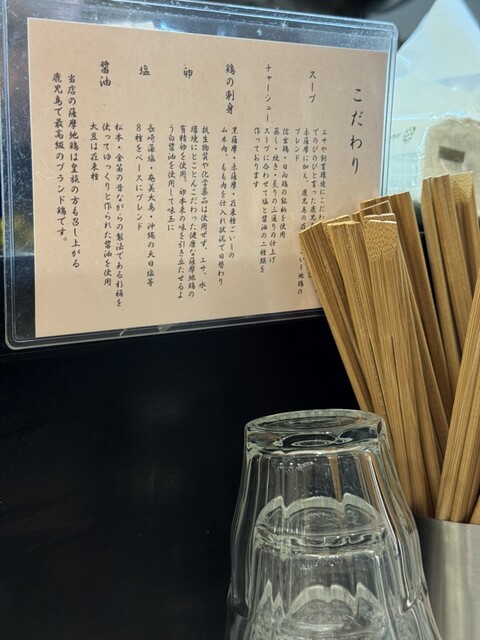 こだわり
スープ
エサや飼育環境にこだ
でのびのびと育った鹿児
赤薩摩に加え、鹿児島の在
いし地鶏の
ブレンド
チャーシュー
信玄鶏・日向鶏の銘柄を使用
蒸し・焼き・炙りの三通りの仕上げ
スープに合わせて塩と醤油の二種類を
作っております
鶏の刺身
黒薩摩・赤薩摩・在来種ごいしの
ムネ肉、もも肉を仕入れ状況で日替わり
卵
抗生物質や化学薬品は使用せず、エサ、水、
環境にとことんこだわった健康な薩摩地鶏の
有精卵を使用。卵本来の味を引き立たせるよ
う白醤油を使用して味玉に
塩
長崎藻塩・奄美大島・沖縄の天日塩等
8種をベースにブレンド
醤油
松本・金笛の昔ながらの製法である杉桶を
使ってゆっくりと作られた醤油を使用
大豆は在来種
当店の薩摩地鶏は皇族の方も召し上がる
鹿児島で最高級のブランド鶏です。